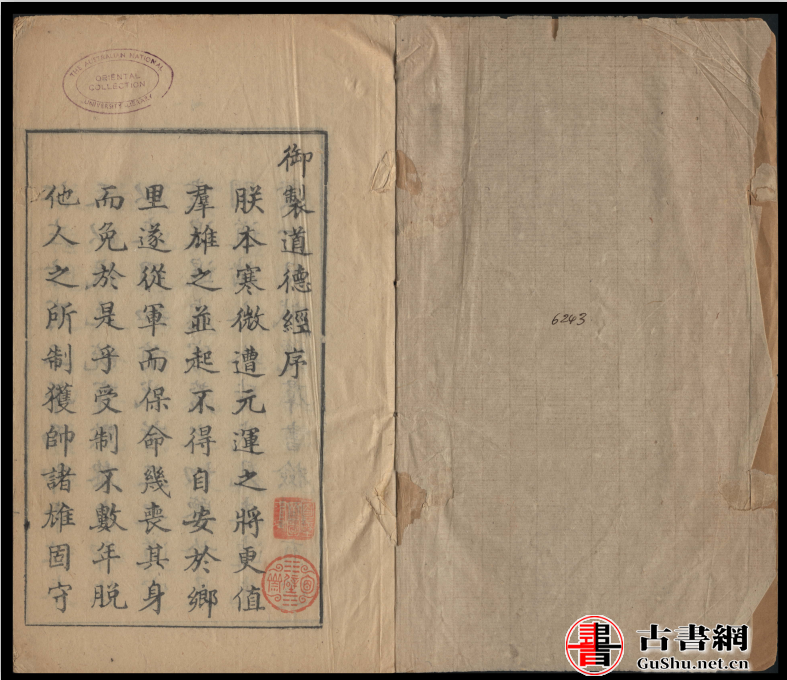 御製道德經序
朕本寒微遭元運之將更值
羣雄之並起不得自安於鄉
里遂從軍而保命幾喪其身
而免於是乎受制不數年脫
他人之所制獲帥諸雄固守
THE AUSTRALIAN NATIONAL
ORIENTAL
COLLECTION
UNIVERSITY LIBRARY
6243
古書網
GuShu.net.cn